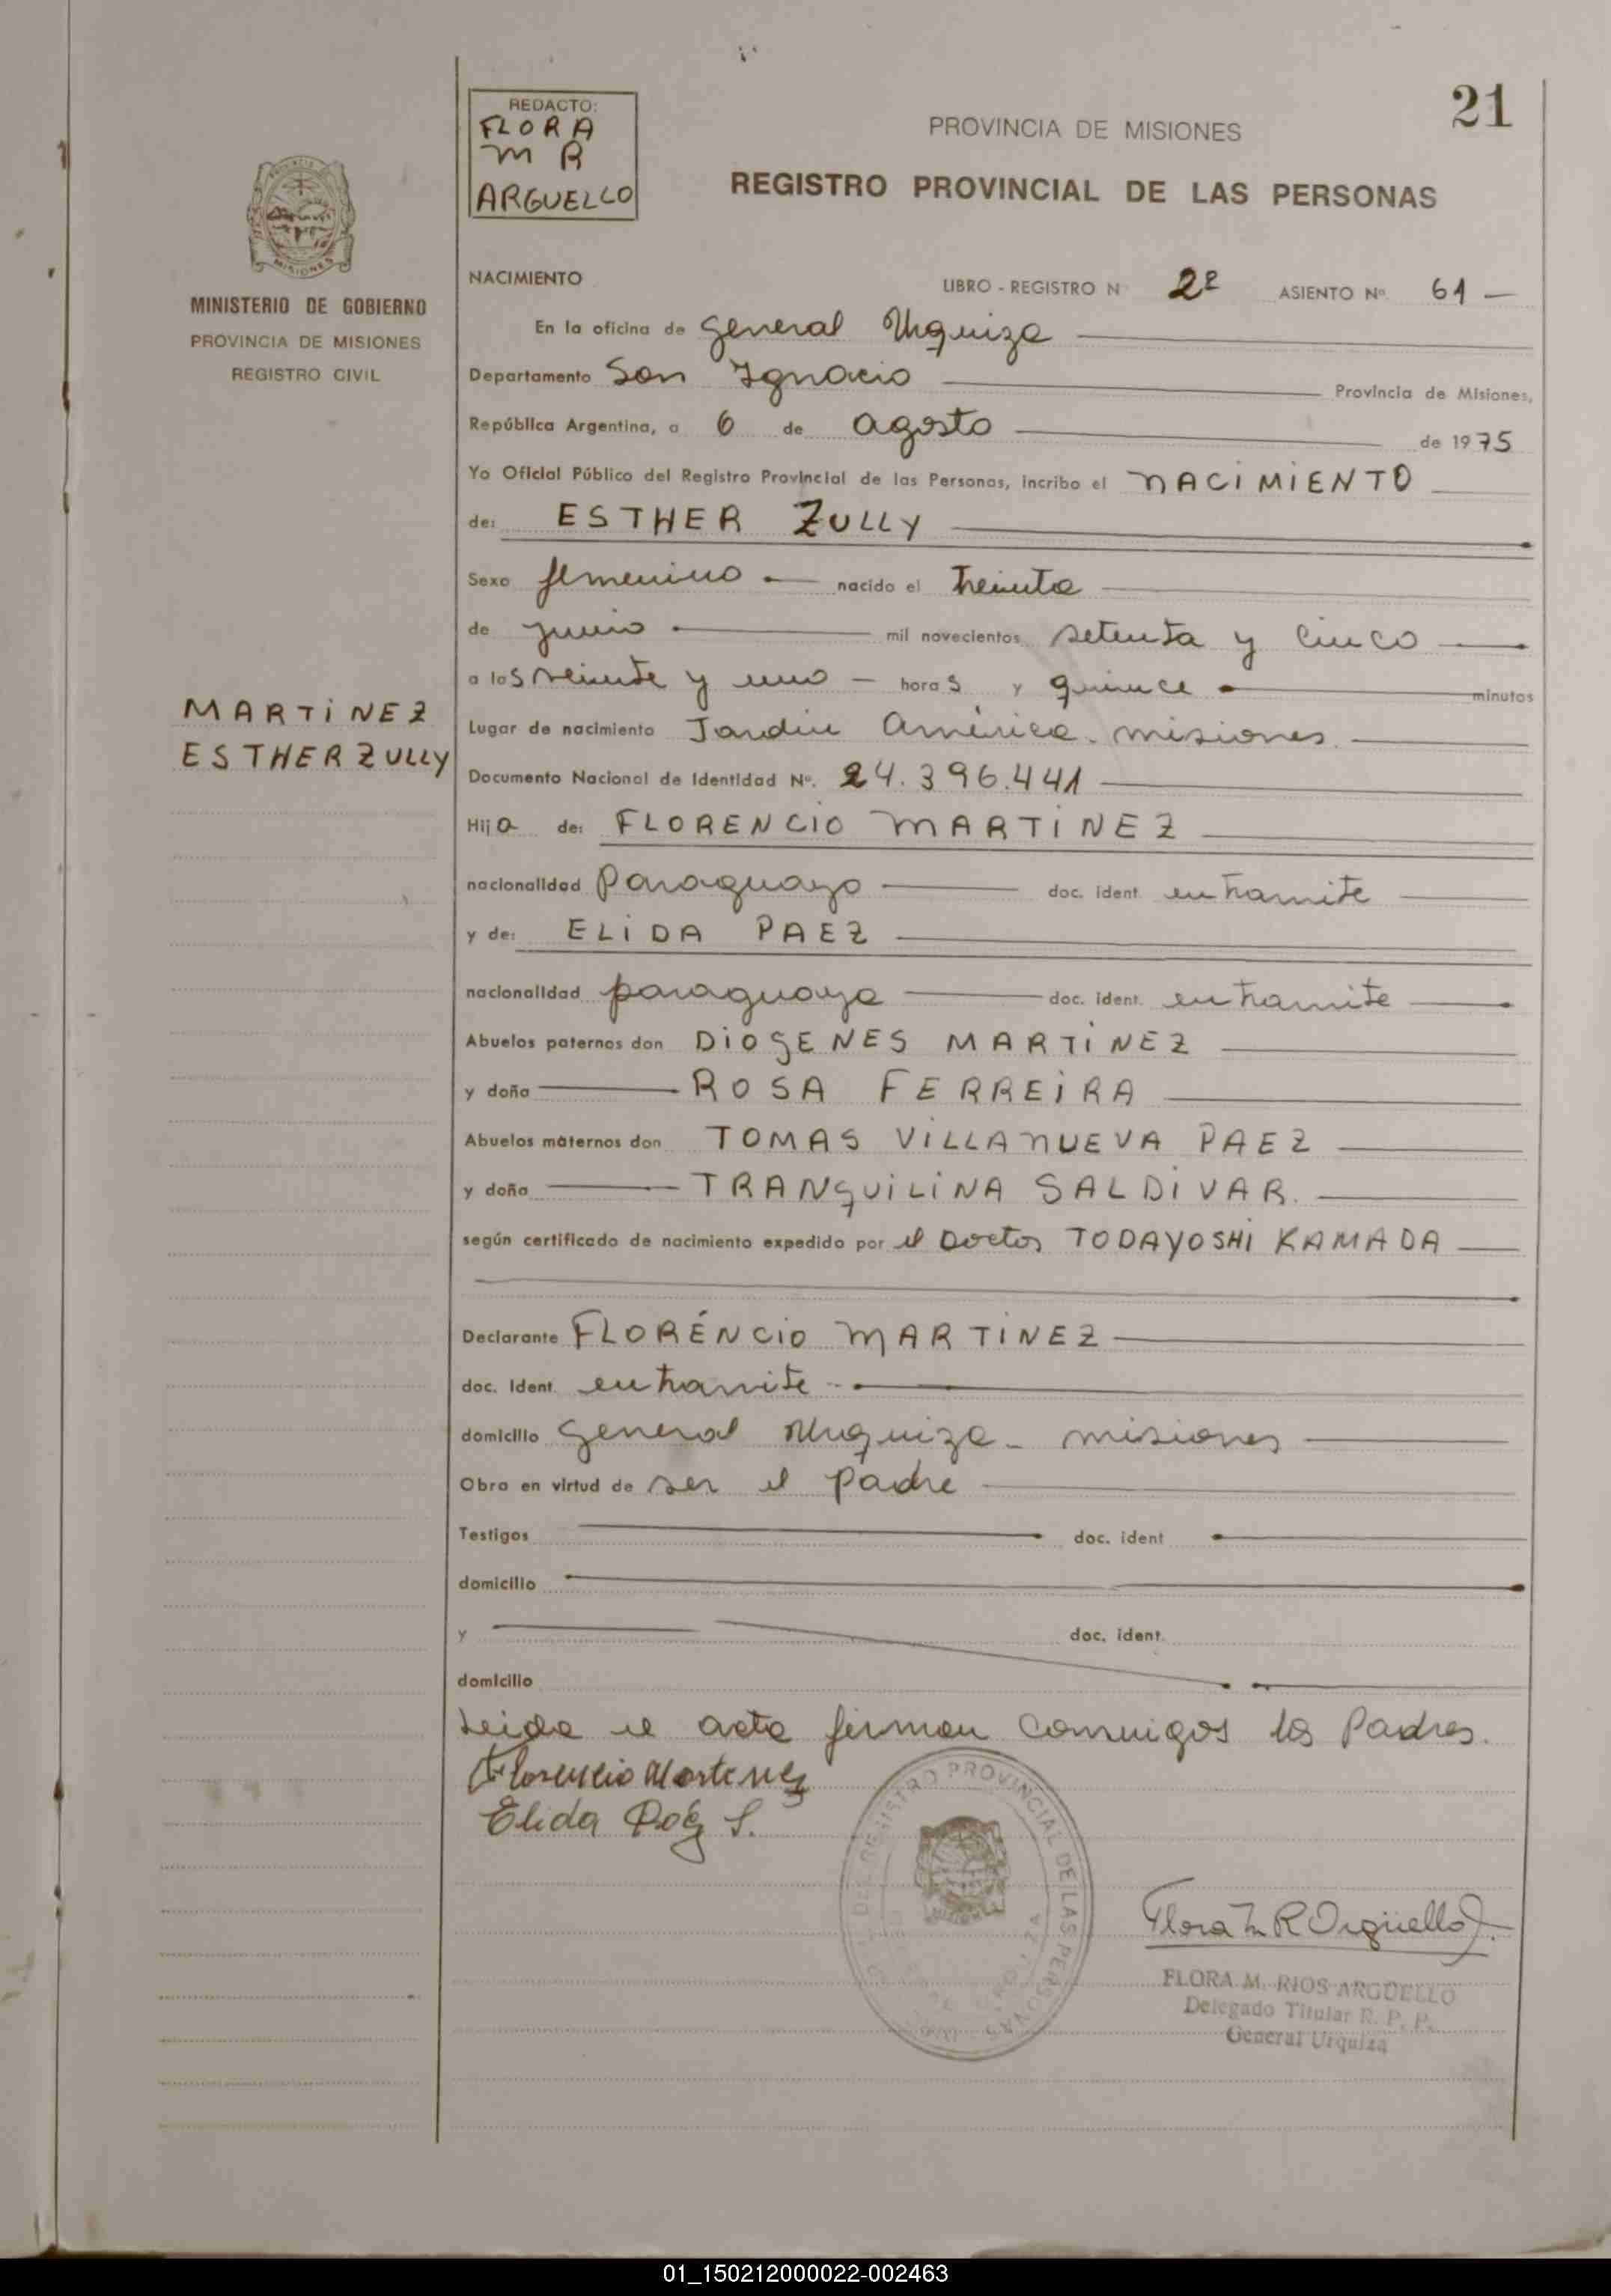 21
REDACTO:
FLORA
M R
ARGUELLO
PROVINCIA DE MISIONES
REGISTRO PROVINCIAL DE LAS PERSONAS
MISIONES
MINISTERIO DE GOBIERNO
PROVINCIA DE MISIONES
REGISTRO CIVIL
MARTINEZ
ESTHER ZULLY
NACIMIENTO LIBRO - REGISTRO N 2º ASIENTO Nº 61 —
En la oficina de General Urquiza
Departamento San Ignacio Provincia de Misiones,
República Argentina, a 6 de agosto de 1975
Yo Oficial Público del Registro Provincial de las Personas, incribo el NACIMIENTO
de: ESTHER ZULLY
Sexo femenino nacido el treinta
de junio mil novecientos setenta y cinco
a los veinte y uno — horas y quince minutos
Lugar de nacimiento Jardin América - misiones
Documento Nacional de Identidad Nº. 24.396.441
Hija de: FLORENCIO MARTINEZ
nacionalidad Paraguayo doc. ident. en tramite
y de: ELIDA PAEZ
nacionalidad paraguaya doc. ident. en tramite
Abuelos paternos don DIOGENES MARTINEZ
y doña ROSA FERREIRA
Abuelos maternos don TOMAS VILLANUEVA PAEZ
y doña TRANQUILINA SALDIVAR.
según certificado de nacimiento expedido por el Doctor TODAYOSHI KAMADA
Declarante FLORENCIO MARTINEZ
doc. Ident. en tramite
domicilio General Urquiza - misiones
Obra en virtud de ser el Padre
Testigos doc. ident
domicilio
y doc. ident.
domicilio
Leida el acta firman conmigos los Padres.
Florencio Martinez
Elida Páez S.
REGISTRO PROVINCIAL DE LAS PERSONAS
Flora M R Argüello
FLORA M. RIOS ARGÜELLO
Delegado Titular R. P. P.
General Urquiza
01_150212000022-002463